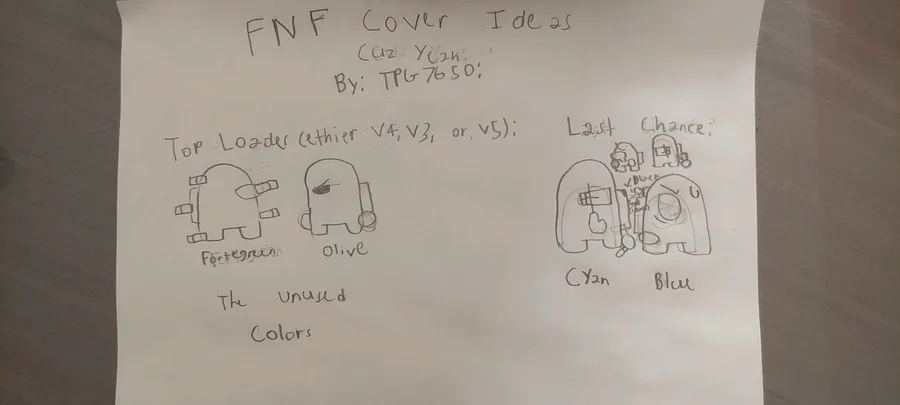 FNF Cover Ideas
Cuz Y(2n;
By: TPG7650;
Top Loader (ethier V4, V3, or V5);
Fortegreen
Olive
The Unused
Colors
Last Chance;
Cyan
Blue